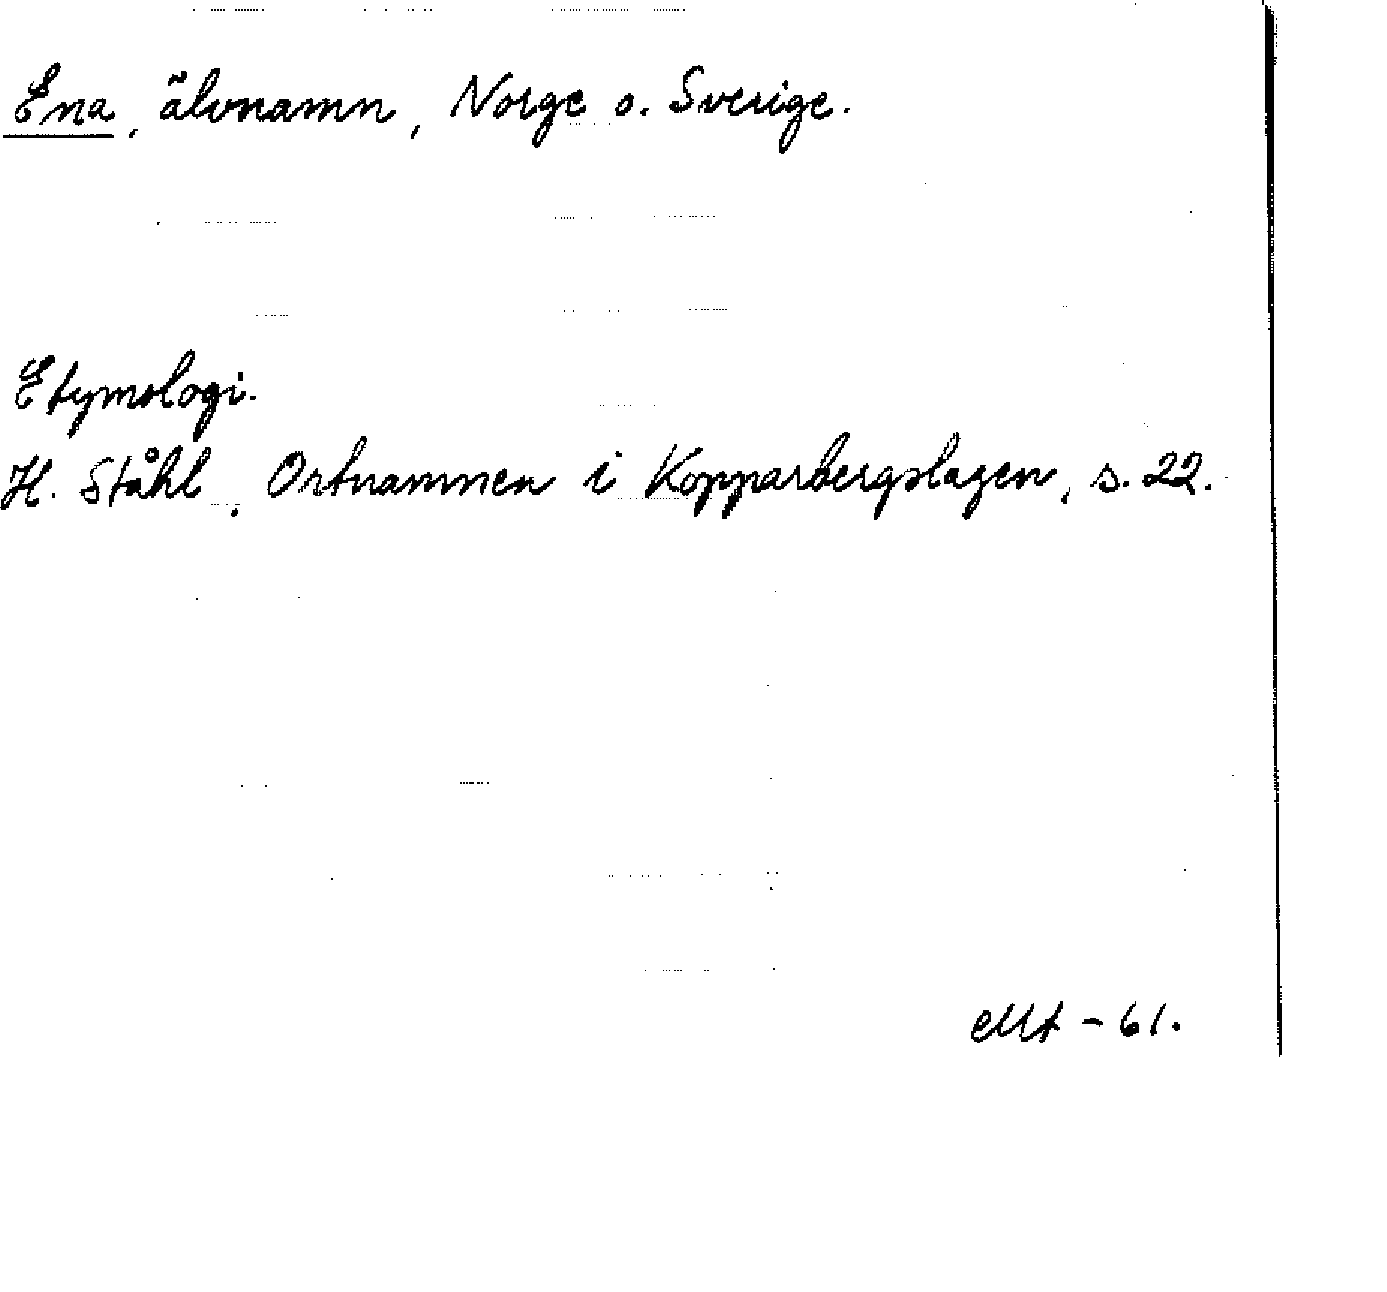 Ena, älvnamn, Norge o. Sverige.
Etymologi.
H. Ståhl, Ortnamnen i Kopparbergslagen, s. 22.
- 61.